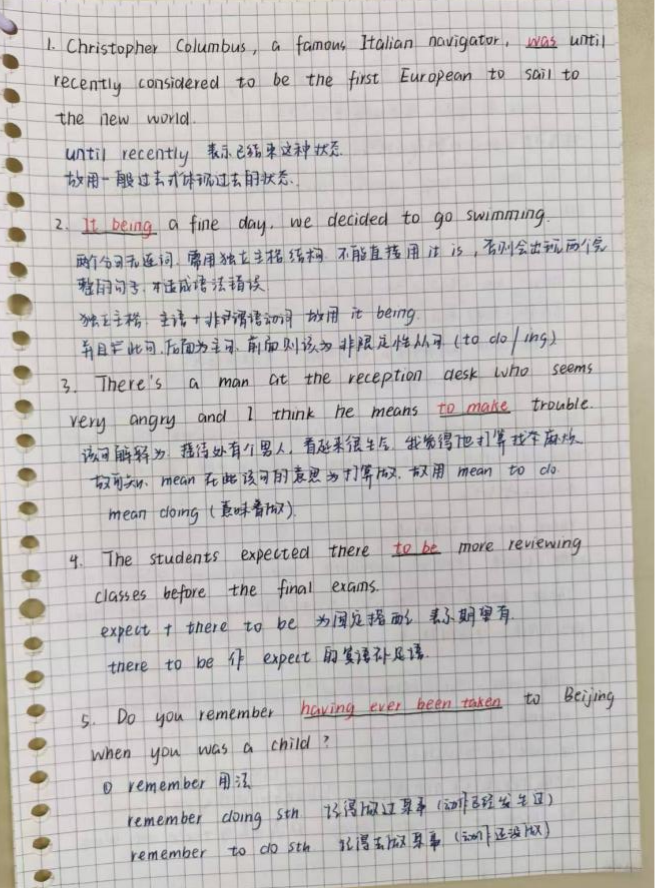 1. Christopher Columbus, a famous Italian navigator, was until
recently considered to be the first European to sail to
the new world.
until recently 表示已结束这种状态
故用一般过去式体现过去的状态.
2. It being a fine day, we decided to go swimming.
两个分句无连词,需用独立主格结构.不能直接用 it is ,否则会出现两个完
整的句子,造成语法错误
独立主格:主语+非谓语动词 故用 it being.
并且此句,后面为主句,前面则该为非限定性从句 (to do / ing)
3. There's a man at the reception desk who seems
very angry and I think he means to make trouble.
该句解释为 接待处有个男人,看起来很生气,我觉得他打算找麻烦.
故可知, mean 在此该句的意思为打算做,故用 mean to do.
mean doing (意味着做).
4. The students expected there to be more reviewing
classes before the final exams.
expect + there to be 为固定搭配 表示期望有.
there to be 作 expect 的宾语补足语.
5. Do you remember having ever been taken to Beijing
when you was a child ?
① remember 用法
remember doing sth 记得做过某事 (动作已经发生过)
remember to do sth 记得去做某事 (动作还没做)